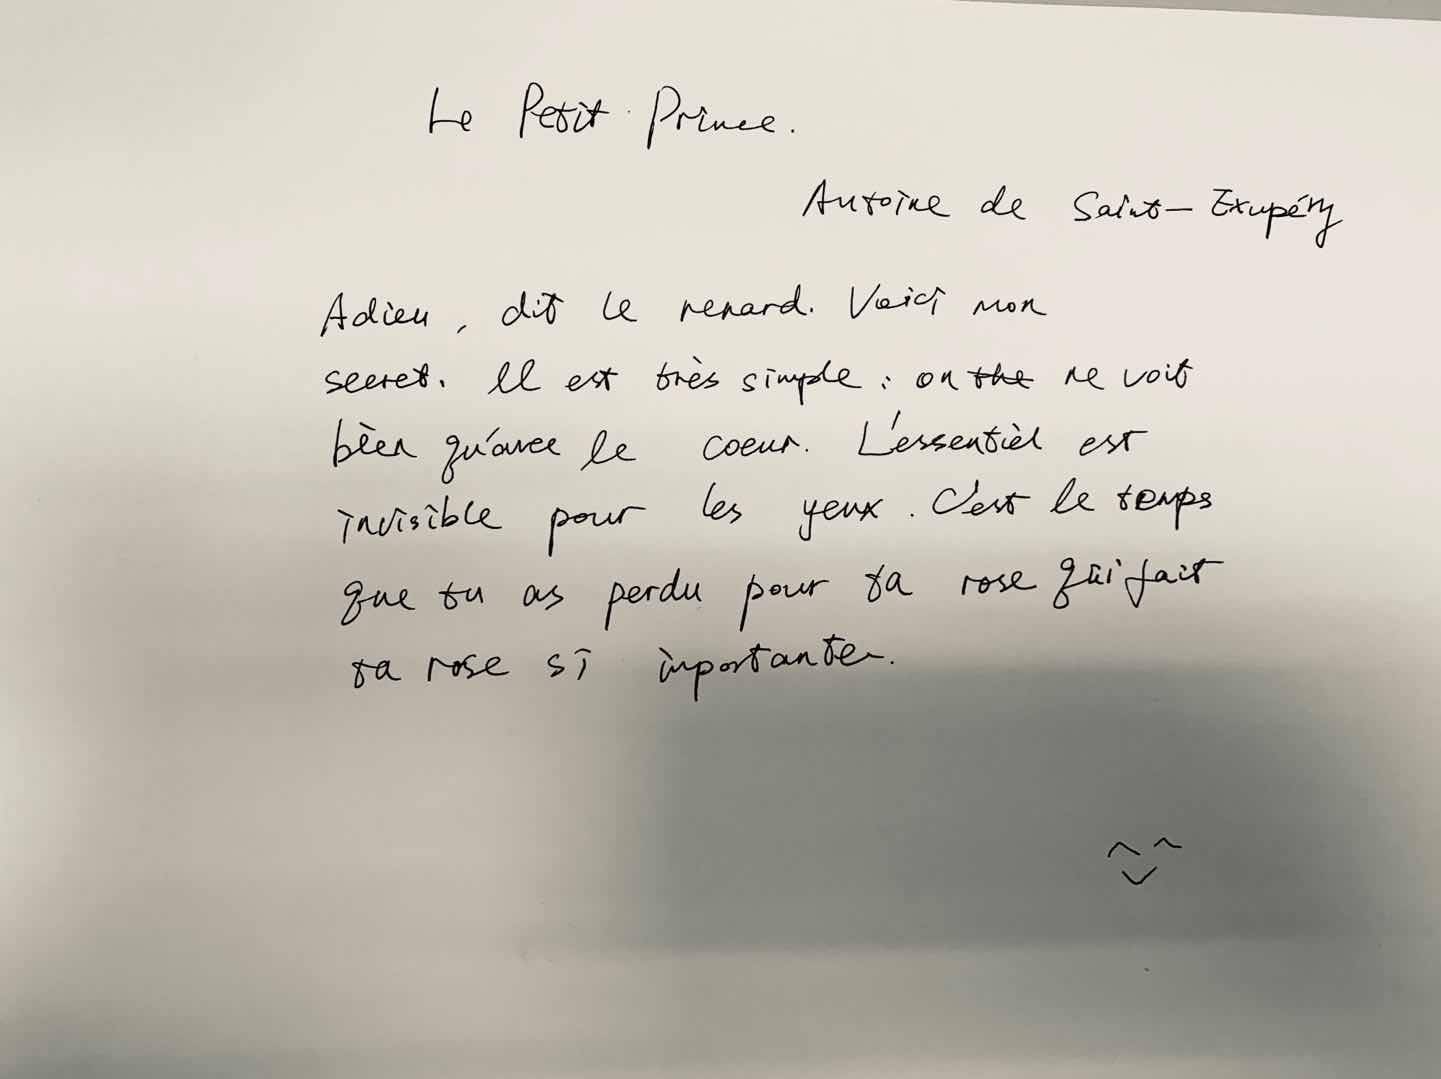 Le Petit Prince.
Antoine de Saint-Exupéry
Adieu, dit le renard. Voici mon
secret. Il est très simple : on the ne voit
bien qu'avec le coeur. L'essentiel est
invisible pour les yeux. C'est le temps
que tu as perdu pour ta rose qui fait
ta rose si importante.